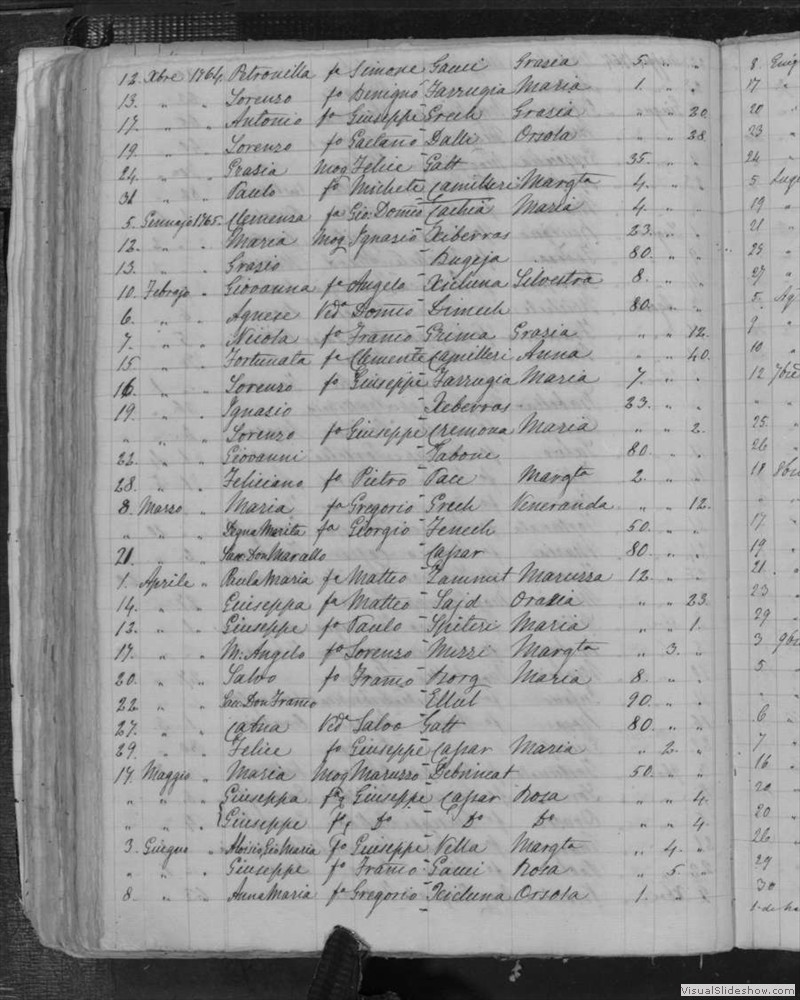 12. Xbre 1764. Petronilla fa Simone Gauci Grazia 5. „ „
13. „ „ Lorenzo fo Benigno Farrugia Maria 1. „ „
17. „ „ Antonio fo Giuseppe Grech Grazia „ „ 20.
19. „ „ Lorenzo fo Gaetano Dalli Orsola „ „ 28.
24. „ „ Grazia Mog Felice Gatt 35. „ „
31 „ „ Paulo fo Michele Camilleri Margta 4. „ „
5. Gennajo 1765. Clemenza fa Gio: Domco Cachia Maria 4. „ „
12. „ „ Maria Mog Ignazio Xiberras 23. „ „
13. „ „ Grazio Bugeja 80. „ „
10. Febrajo „ Giovanna fa Angelo Xicluna Silvestra 8. „ „
6. „ „ Agnese Veda Domco Dimech 80. „ „
7. „ „ Nicola fo Franco Grima Grazia „ „ 12.
15. „ „ Fortunata fa Clemente Camilleri Anna „ „ 40.
16. „ „ Lorenzo fo Giuseppe Farrugia Maria 7. „ „
19. „ „ Ignazio Xeberras 23. „ „
„ „ „ Lorenzo fo Giuseppe Cremona Maria „ „ 2.
22. „ „ Giovanni Sabone 80. „ „
28. „ „ Feliciano fo Pietro Pace Margta 2. „ „
8. Marzo „ Maria fa Gregorio Grech Veneranda „ „ 12.
„ „ „ Degna Marita fa Giorgio Fenech 50. „ „
21 „ „ Sac: Don Marcello Capar 80. „ „
1. Aprile „ Paula Maria fa Matteo Zammut Maruzza 12. „ „
14. „ „ Giuseppa fa Matteo Sajd Orazia „ „ 23.
12. „ „ Giuseppe fo Paulo Spiteri Maria „ „ 1.
17. „ „ M: Angelo fo Lorenzo Mizzi Margta „ 3. „
20. „ „ Salvo fo Franco Borg Maria 8. „ „
22. „ „ Sac: Don Franco Ellul 90. „ „
27. „ „ Catna Ved Salvo Gatt 80. „ „
29. „ „ Felice fo Giuseppe Capar Maria „ 2. „
17. Maggio „ Maria Mog Maruzzo Debrincat 50. „ „
„ „ „ Giuseppa fa Giuseppe Capar Rosa „ „ 4.
„ „ „ Giuseppe fo Do Do Do „ „ 4.
3. Giugno „ Aloisio, Gio Maria fo Giuseppe Vella Margta „ 4. „
„ „ „ Giuseppe fo Franco Gauci Rosa „ 5. „
8. „ „ Anna Maria fa Gregorio Xicluna Orsola 1. „ „
8 Giug
17
20
23
24
5 Lugl
19
21
25
27
5. Ag
9
10
12 7bre
25.
26
18 8bre
17.
19
21.
23
29
3 9bre
5.
6
7
16
20
26
29
30
VisualSlideshow.com